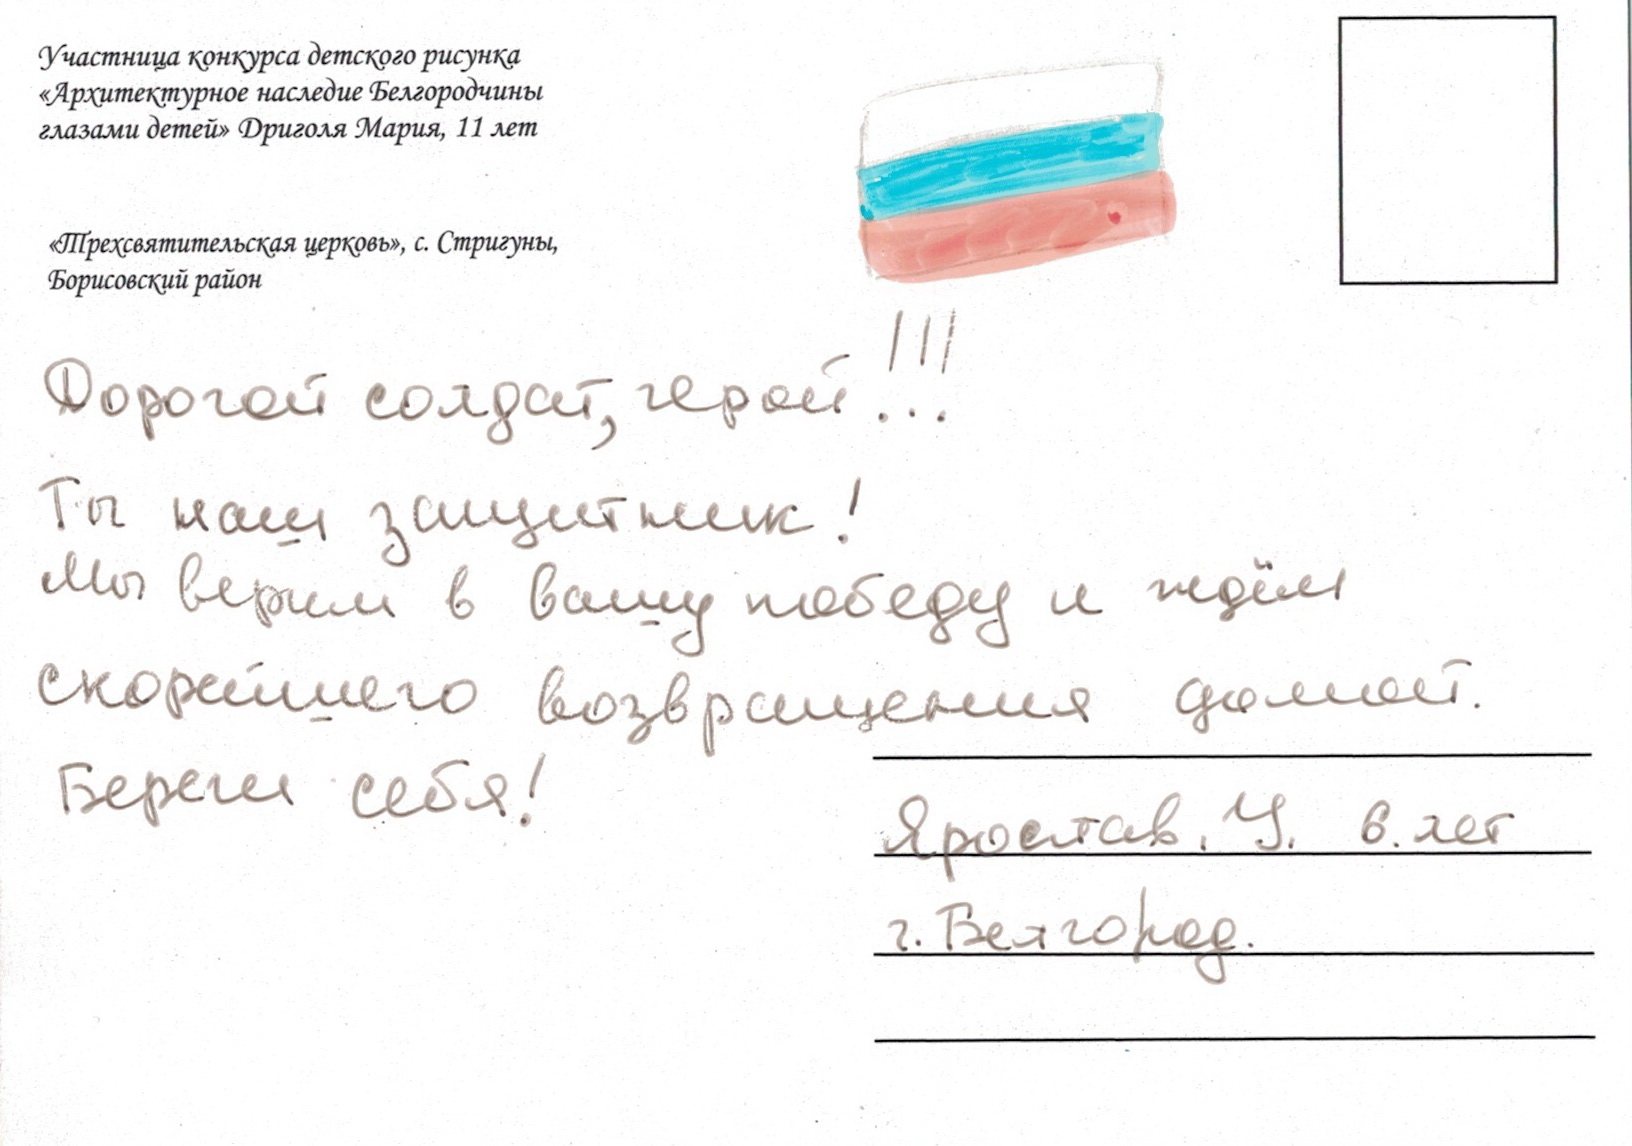 Участница конкурса детского рисунка
«Архитектурное наследие Белгородчины
глазами детей» Дриголя Мария, 11 лет
«Трехсвятительская церковь», с. Стригуны,
Борисовский район
Дорогой солдат, герой!!!
Ты наш защитник!
Мы верим в вашу победу и ждём
скорейшего возвращения домой.
Береги себя!
Ярослав. У. 6. лет
г. Белгород.